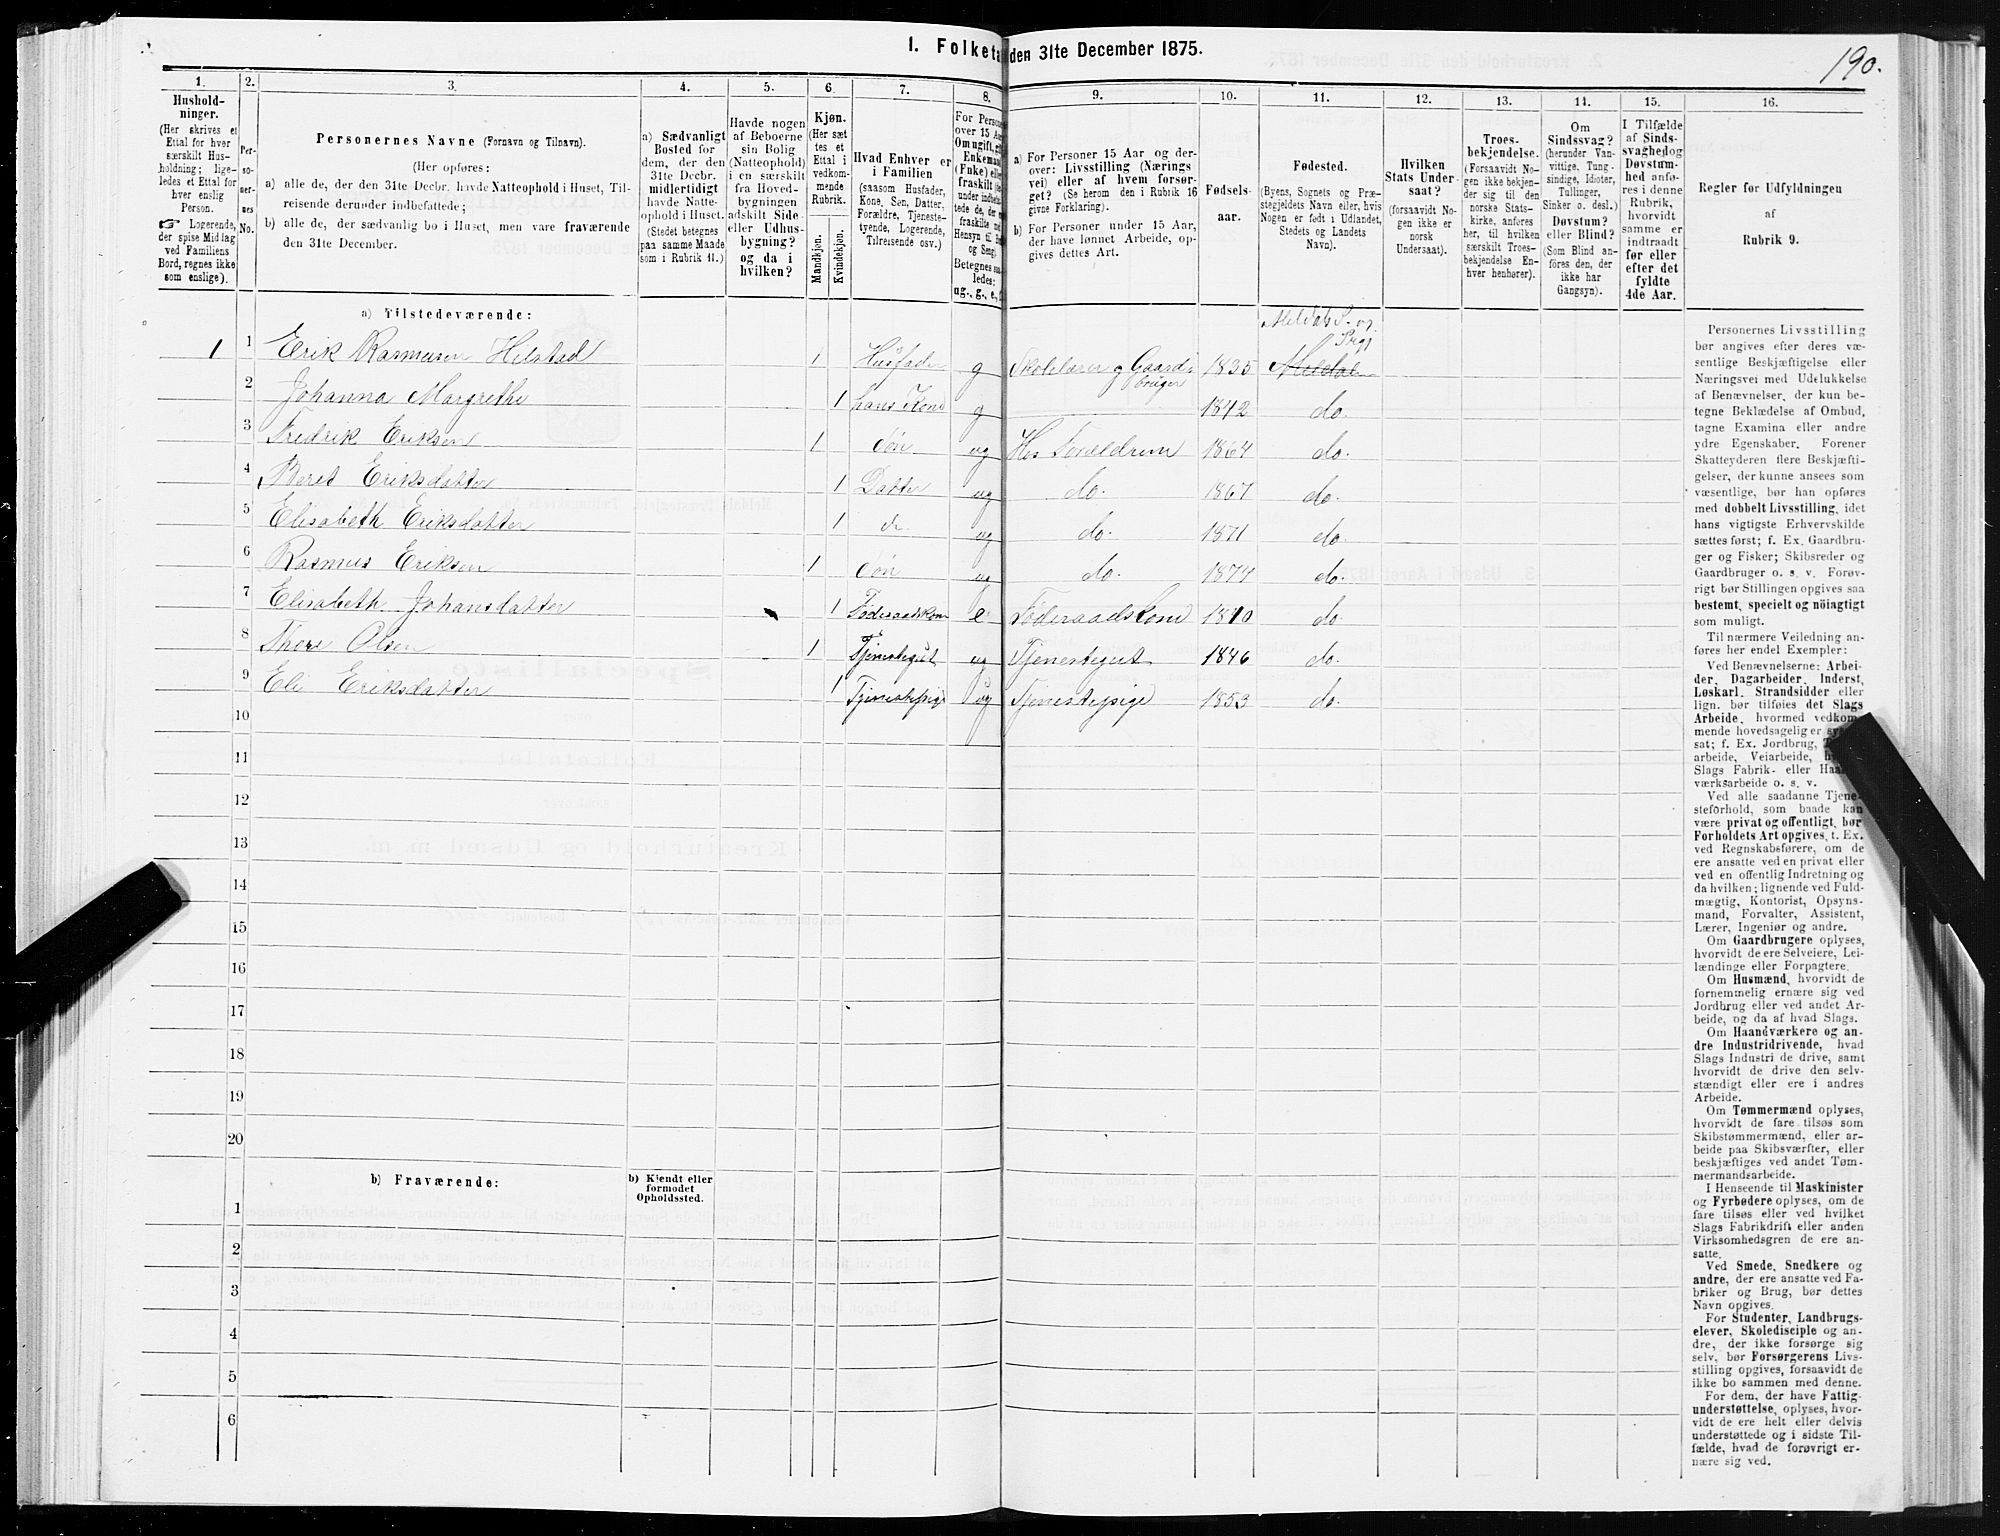 1. Folketa den 31te December 1875.
190.
1.
2.
3.
4.
5.
6.
7.
8.
9.
10.
11.
12.
13.
14.
15.
16.
Hushold-
ninger.
(Her skrives et
Ettal for hver
særskilt Hus-
holdning; lige-
ledes et Ettal for
hver enslig
Person.
☞ Logerende,
der spise Middag
ved Familiens
Bord, regnes ikke
som enslige).
Per-
so-
ner-
nes
No.
Personernes Navne (Fornavn og Tilnavn).
(Her opføres:
a) alle de, der den 31te Decbr. havde Natteophold i Huset, Til-
reisende derunder indbefattede;
b) alle de, der sædvanlig bo i Huset, men vare fraværende
den 31te December.
a) Sædvanligt
Bosted for
dem, der den
31te Decbr.
midlertidigt
havde Natte-
ophold i Huset.
(Stedet betegnes
paa samme Maade
som i Rubrik 11.)
Havde nogen
af Beboerne
sin Bolig
(Natteophold)
i en særskilt
fra Hoved-
bygningen
adskilt Side-
eller Udhus-
bygning?
og da i
hvilken?
Kjøn.
(Her sæt
tes et
Ettal i
vedkom-
mende
Rubrik.
Mandkjøn.
Kvindekjøn.
Hvad Enhver er
i Familien
(saasom Husfader,
Kone, Søn, Datter,
Forældre, Tjeneste-
tyende, Logerende,
Tilreisende osv.)
For Persone
over 15 Aar
Om ugift, gi
Enkemand
(Enke) elle
fraskilt
under indbe
tede de, der e
fraskilte
Hensyn til
og Seng)
Betegnes saa
ledes:
ug., g., e.,
a) For Personer 15 Aar og der-
over: Livsstilling (Nærings
vei) eller af hvem forsør-
get? (Se herom den i Rubrik 16
givne Forklaring).
b) For Personer under 15 Aar,
der have lønnet Arbeide, op-
gives dettes Art.
Fødsels-
aar.
Fødested.
(Byens, Sognets og Præ-
stegjeldets Navn eller, hvis
Nogen er født i Udlandet,
Stedets og Landets
Navn).
Hvilken
Stats Under-
saat?
(forsaavidt No-
gen ikke er
norsk
Undersaat).
Troes-
bekjendelse.
(Forsaavidt No-
gen ikke bekjen-
der sig til den
norske Stats-
kirke, anføres
her, til hvilken
særskilt Troes-
bekjendelse En-
hver henhører).
Om
Sindssvag?
(herunder Van-
vittige, Tung-
sindige, Idioter,
Tullinger,
Sinker o. desl.)
Døvstum?
eller Blind?
(Som Blind an-
føres den, der
ikke har
Gangsyn).
I Tilfælde
af Sinds-
svaghed og
Døvstum-
hed anfø-
res i denne
Rubrik,
hvorvidt
samme er
indtraadt
før eller
efter det
fyldte
4de Aar.
Regler for Udfyldningen
af
Rubrik 9.
a) Tilstedeværende:
Meldals S. og
Prgj
1 1 Erik Rasmusen Helstad 1 Husfader g Skolelærer og Gaard- 1835 Meldal
bruger
2 Johanna Margrethe 1 hans Kone g 1842 do.
3 Fredrik Eriksen 1 Søn ug Hos Forældrene 1864 do.
4 Beret Eriksdatter 1 Datter ug do. 1867 do.
5 Elisabeth Eriksdatter 1 do ug do. 1871 do.
6 Rasmus Eriksen 1 Søn ug do. 1874 do.
7 Elisabeth Johansdatter 1 Føderaadskone e. Føderaadskone 1810 do.
8 Thore Olsen 1 Tjenestegut ug Tjenestegut 1846 do.
9 Eli Eriksdatter 1 Tjenestepige ug Tjenestepige 1853 do.
10
11
12
13
14
15
16
17
18
19
20
b) Fraværende:
b) Kjendt eller
formodet
Opholdssted.
1
2
3
4
5
6
Personernes Livsstilling
bør angives efter deres væ-
sentlige Beskjæftigelse eller
Næringsvei med Udelukkelse
af Benævnelser, der kun be-
tegne Beklædelse af Ombud,
tagne Examina eller andre
ydre Egenskaber. Forener
Skatteyderen flere Beskjæfti-
gelser, der kunne ansees som
væsentlige, bør han opføres
med dobbelt Livsstilling, idet
hans vigtigste Erhvervskilde
sættes først; f. Ex. Gaardbru-
ger og Fisker; Skibsreder og
Gaardbruger o. s. v. Forøv-
rigt bør Stillingen opgives saa
bestemt, specielt og nöiagtigt
som muligt.
Til nærmere Veiledning an-
føres her endel Exempler:
Ved Benævnelserne: Arbei-
der, Dagarbeider, Inderst,
Løskarl, Strandsidder eller
lign. bør tilføies det Slags
Arbeide, hvormed vedkom-
mende hovedsagelig er
sat; f. Ex. Jordbrug,
arbeide, Veiarbeide,
Slags Fabrik- eller
værksarbeide o. s. v.
Ved alle saadanne Tjene-
steforhold, som baade kan
være privat og offentligt, bør
Forholdets Art opgives, t. Ex.
ved Regnskabsførere, om de
ere ansatte ved en privat eller
ved en offentlig Indretning og
da hvilken; lignende ved Fuld-
mægtig, Kontorist, Opsyns-
mand, Forvalter, Assistent,
Lærer, Ingeniør og andre.
Om Gaardbrugere oplyses,
hvorvidt de ere Selveiere, Lei-
lændinge eller Forpagtere.
Om Husmænd, hvorvidt de
fornemmelig ernære sig ved
Jordbrug eller ved andet Ar-
beide, og da af hvad Slags.
Om Haandværkere og an-
dre Industridrivende, hvad
Slags Industri de drive, samt
hvorvidt de drive den selv-
stændigt eller ere i andres
Arbeide.
Om Tømmermænd oplyses,
hvorvidt de fare tilsøs som
Skibstømmermænd, eller ar-
beide paa Skibsværfter, eller
beskjæftiges ved andet Tøm-
mermandsarbeide.
I Henseende til Maskinister
og Fyrbødere oplyses, om de
fare tilsøs eller ved hvilket
Slags Fabrikdrift eller anden
Virksomhedsgren de ere an-
satte.
Ved Smede, Snedkere og
andre, der ere ansatte ved Fa-
briker og Brug, bør dettes
Navn opgives.
For Studenter, Landbrugs-
elever, Skoledisciple og an-
dre, der ikke forsørge sig
selv, bør Forsørgerens Livs-
stilling opgives, forsaavidt de
ikke bo sammen med denne.
For dem, der have Fattig-
understøttelse, oplyses, hvor-
vidt de ere helt eller delvis
understøttede og i sidste Til-
fælde, hvad de forøvrigt er-
nære sig ved.